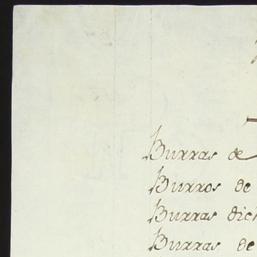 Burras de
Burros de
Burras dich
Burras de